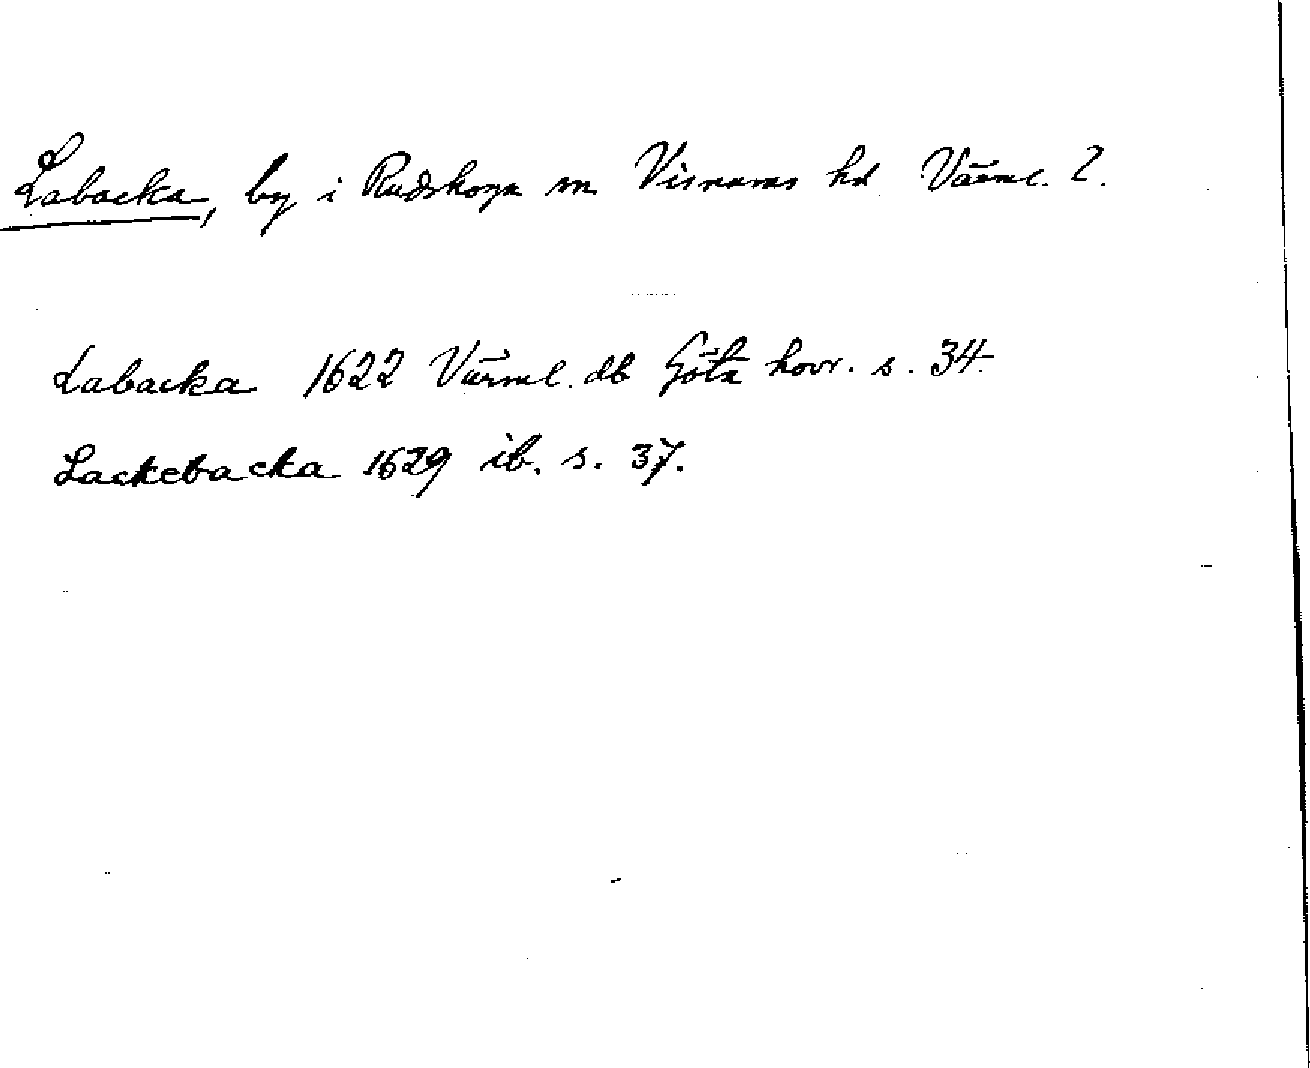 Labacka, by i Rudskoga sn Visnums hd Värml. l.
Labacka 1622 Värml. db Göta hovr. s. 34.
Lackebacka 1629 ib. s. 37.